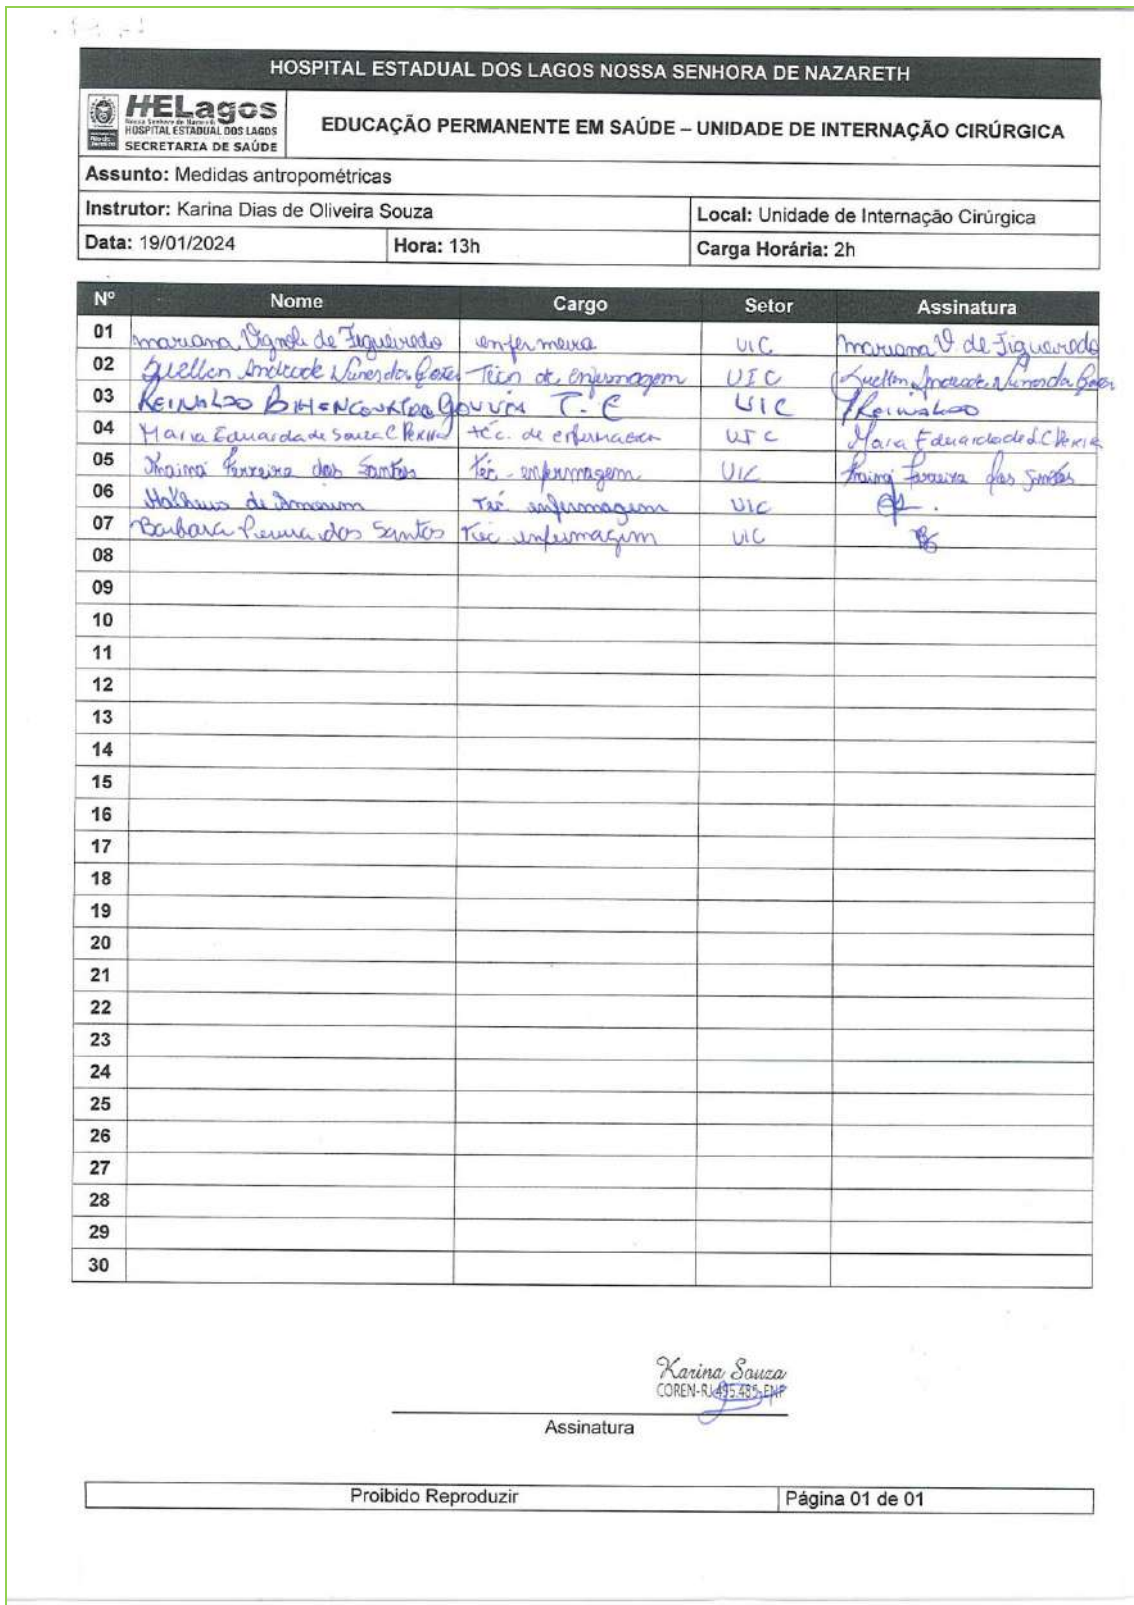 HOSPITAL ESTADUAL DOS LAGOS NOSSA SENHORA DE NAZARETH
HELagos
Nossa Senhora de Nazareth
HOSPITAL ESTADUAL DOS LAGOS
SECRETARIA DE SAÚDE
EDUCAÇÃO PERMANENTE EM SAÚDE – UNIDADE DE INTERNAÇÃO CIRÚRGICA
Assunto: Medidas antropométricas
Instrutor: Karina Dias de Oliveira Souza Local: Unidade de Internação Cirúrgica
Data: 19/01/2024 Hora: 13h Carga Horária: 2h
Nº Nome Cargo Setor Assinatura
01 mariana Vignoli de Figueiredo enfermeira UIC mariana V de Figueiredo
02 Quellen Andrade Nunes da Téc de enfermagem UIC Quellen Andrade Nunes da
03 REINALDO T.E UIC Reinaldo
04 Maria Eduarda de Souza C Pereira téc. de enfermagem UIC Maria Eduarda de S. C Pereira
05 Thainá Ferreira dos Santos téc. enfermagem UIC Thainá Ferreira dos Santos
06 Matheus de Amorim Téc enfermagem UIC
07 Barbara Pereira dos Santos Téc enfermagem UIC
08
09
10
11
12
13
14
15
16
17
18
19
20
21
22
23
24
25
26
27
28
29
30
Karina Souza
COREN-RJ 495.485-ENF
Assinatura
Proibido Reproduzir Página 01 de 01